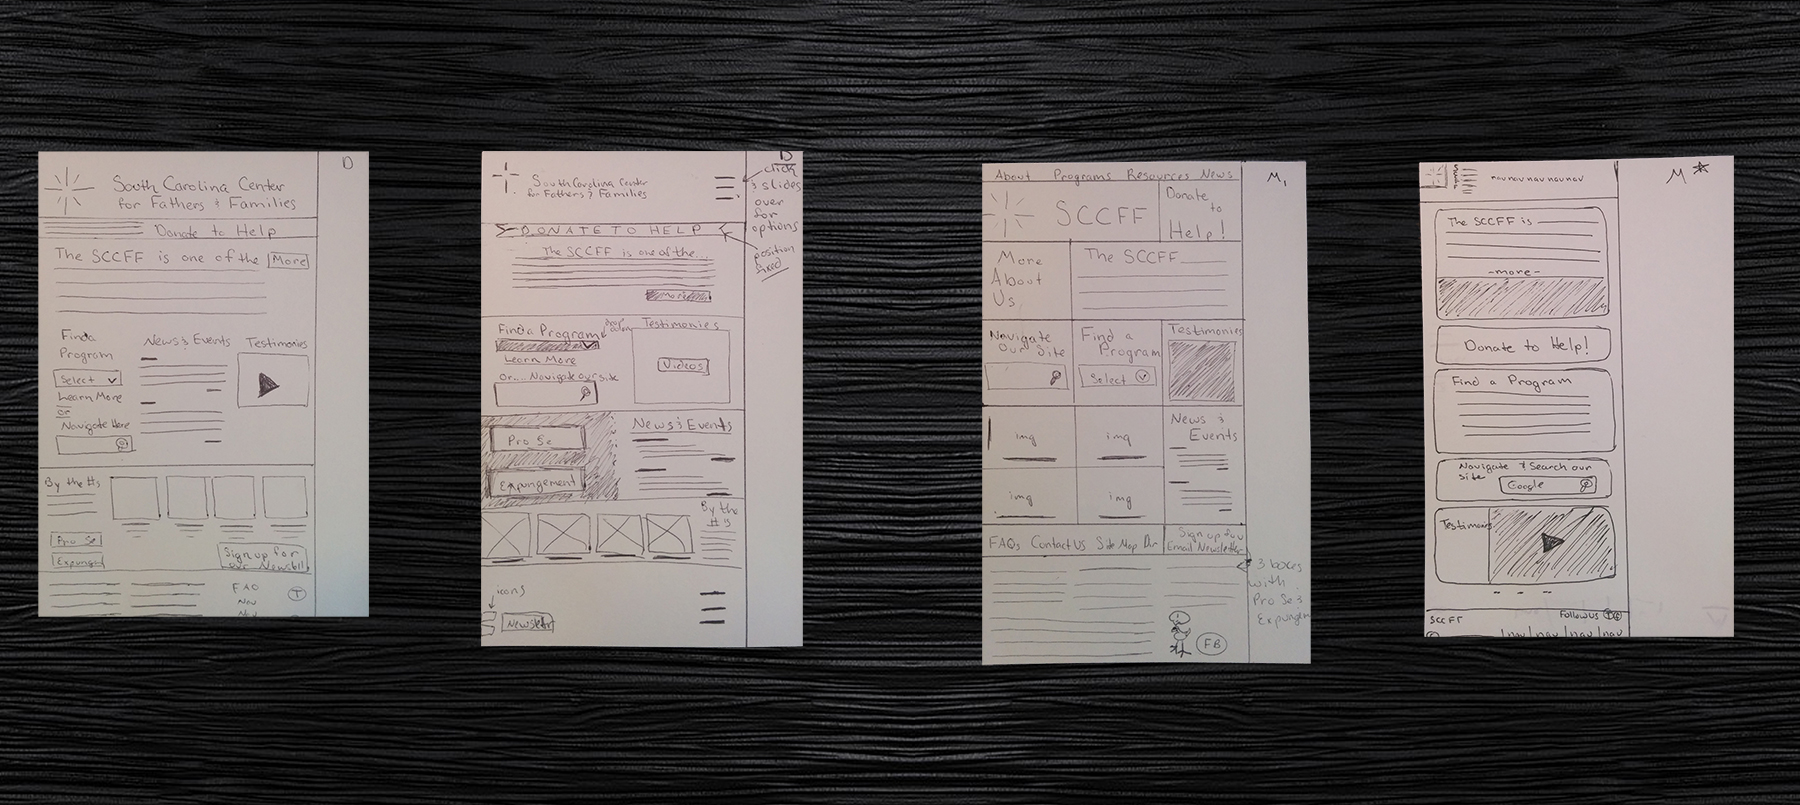 D
South Carolina Center
for Fathers & Families
Donate to Help
The SCCFF is one of the More
Find a
Program
Select
Learn More
or
Navigate Here
News & Events
Testimonies
By the #s
Pro Se
Expung
Sign up for
our Newslt
FAQ
Nav
Nav
T
D
click
& slides
over
for
options
South Carolina Center
for Fathers & Families
DONATE TO HELP
position
fixed
The SCCFF is one of the...
More
Find a Program
drop
down
Learn More
Or... Navigate our site
Testimonies
Videos
Pro Se
Expungement
News & Events
By the
#'s
icons
Newsletter
M,
About Programs Resources News
SCCFF
Donate
to
Help!
More
About
Us
The SCCFF
Navigate
Our Site
Find a
Program
Select
Testimonies
img
img
img
img
News &
Events
FAQs Contact Us Site Map Dir
Sign up for
Email Newsletter
3 boxes
with
Pro Se &
Expungem
FB
M
nav nav nav nav nav
The SCCFF is
-more-
Donate to Help!
Find a Program
Navigate & Search our
Site
Google
Testimonies
SCCFF
Follow Us
nav nav nav nav